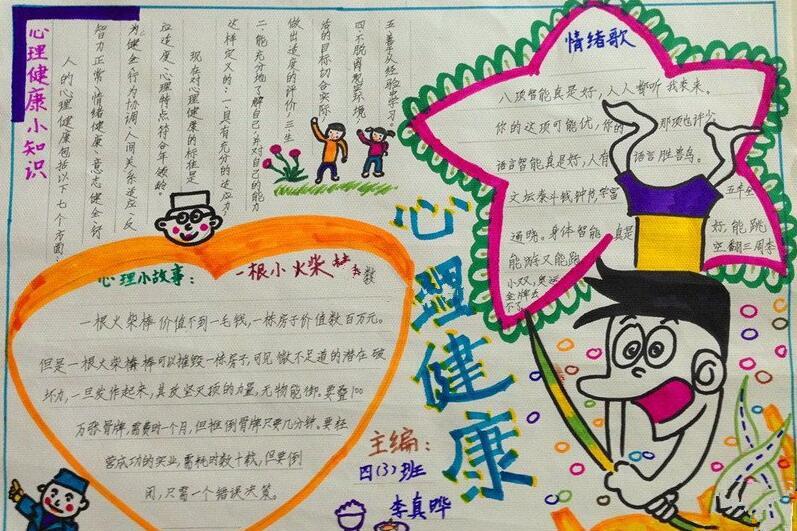 心理健康小知识
人的心理健康包括以下七个方面:
智力正常、情绪健康、意志健全、行
为健全、行为协调、人间关系适应、反
应适度、心理特点符合年龄。
现在对心理健康的标准是
这样定义的:一、具有充分的适应力;
二、能充分地了解自己,并对自己的能力
做出适度的评价;三、生
活的目标切合实际;
四、不脱离现实环境
五、善于从经验中学习。
情绪歌
八项智能真是好,人人都听我来来。
你的这项可能优,你的那项也许少
语言智能真是好,人有语言胜兽鸟。
文坛泰斗钱钟书,学富五车全
通晓。身体智能真是好,能跳
能游又能跑 空翻三周李
小双,奥运
金牌去
不了
心理健康
心理小故事:
一根小火柴
一根火柴棒价值不到一毛钱,一栋房子价值数百万元。
但是一根火柴棒棒可以摧毁一栋房子,可见微不足道的潜在破
坏力,一旦发作起来,其攻坚灭顶的力量,无物能御。要叠100
万张骨牌,需费时一个月,但推倒骨牌只要几分钟。要经
营成功的实业,需耗时数十载,但要倒
闭,只需一个错误决策。
主编:
四(3)班
李真晔